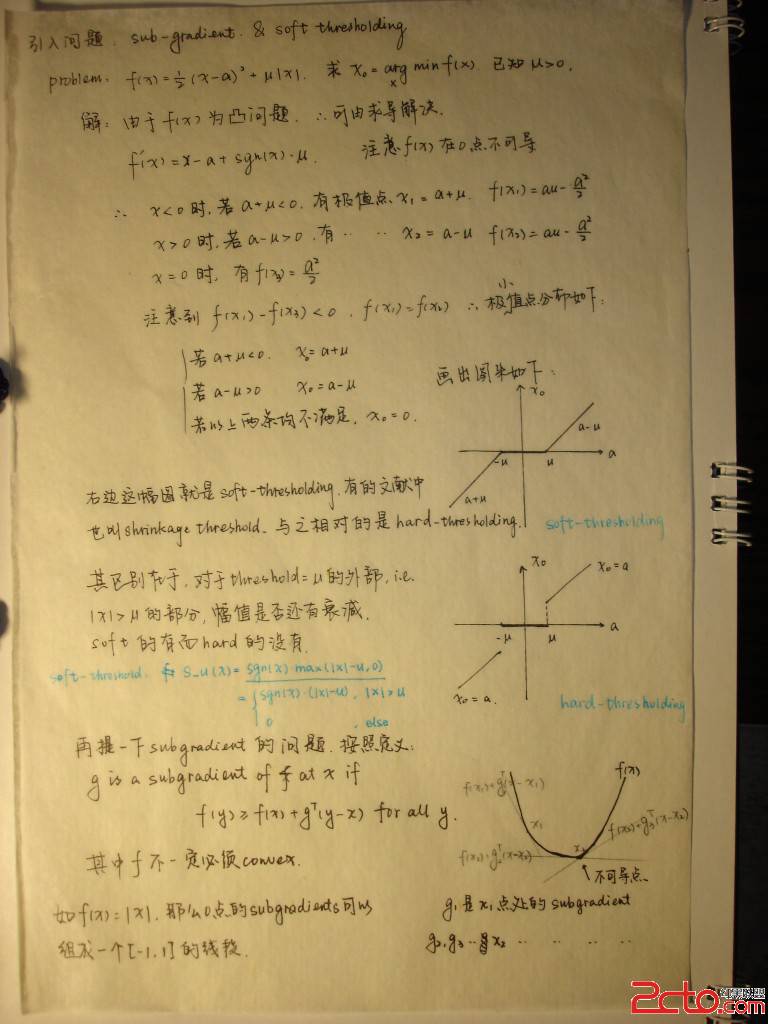 引入问题. sub-gradient. & soft thresholding
problem. f(x) = ½ (x-a)² + μ|x|. 求 x₀ = arg min f(x). 已知 μ>0.
x
解: 由于 f(x) 为凸问题. ∴ 可由求导解决.
f'(x) = x - a + sgn(x)·μ. 注意 f(x) 在 0 点不可导
∴ x<0 时, 若 a+μ<0, 有极值点 x₁ = a+μ. f(x₁) = aμ - a²/2
x>0 时, 若 a-μ>0, 有 ‥ ‥ x₂ = a-μ f(x₂) = aμ - a²/2
x=0 时, 有 f(x₃) = a²/2
注意到 f(x₁) - f(x₃) < 0, f(x₁) = f(x₂) ∴ 极小值点分布如下:
若 a+μ<0. x₀ = a+μ
若 a-μ>0 x₀ = a-μ
若以上两条均不满足, x₀ = 0.
画出图来如下:
x₀
a-μ
-μ μ a
a+μ
soft-thresholding
右边这幅图就是 soft-thresholding, 有的文献中
也叫 shrinkage threshold. 与之相对的是 hard-thresholding.
其区别在于, 对于 threshold = μ 的外部, i.e.
|x| > μ 的部分, 幅值是否还有衰减.
soft 的有而 hard 的没有.
x₀ x₀=a
-μ μ a
x₀=a.
hard-thresholding
soft-threshold. S_u(x) = sgn(x)·max(|x|-u, 0)
= { sgn(x)·(|x|-u), |x|>u
0 , else
再提一下 subgradient 的问题. 按照定义:
g is a subgradient of f at x if
f(y) ≥ f(x) + gᵀ(y-x) for all y.
其中 f 不一定必须 convex.
如 f(x) = |x|. 那么 0 点的 subgradients 可以
组成一个 [-1, 1] 的线段.
f(x)
f(x₁)+g₁ᵀ(x-x₁)
x₁
f(x₂)+g₃ᵀ(x-x₂)
f(x₂)+g₂ᵀ(x-x₂)
x₂
不可导点
g₁ 是 x₁ 点处的 subgradient
g₂, g₃ ‥ 是 x₂ ‥ ‥ ‥ ‥
2cto.com
红黑联盟